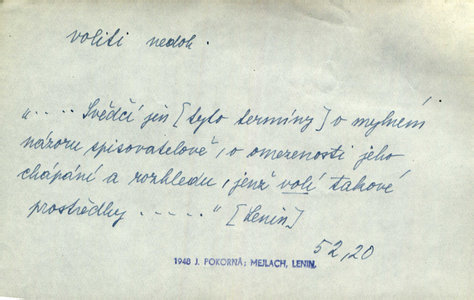 voliti nedok.
„.... Svědčí jen [tyto termíny] o mylném
názoru spisovatelově, o omezenosti jeho
chápání a rozhledu, jenž volí takové
prostředky ....." [Lenin.]
52,20
1948 J. POKORNÁ: MEJLACH, LENIN.